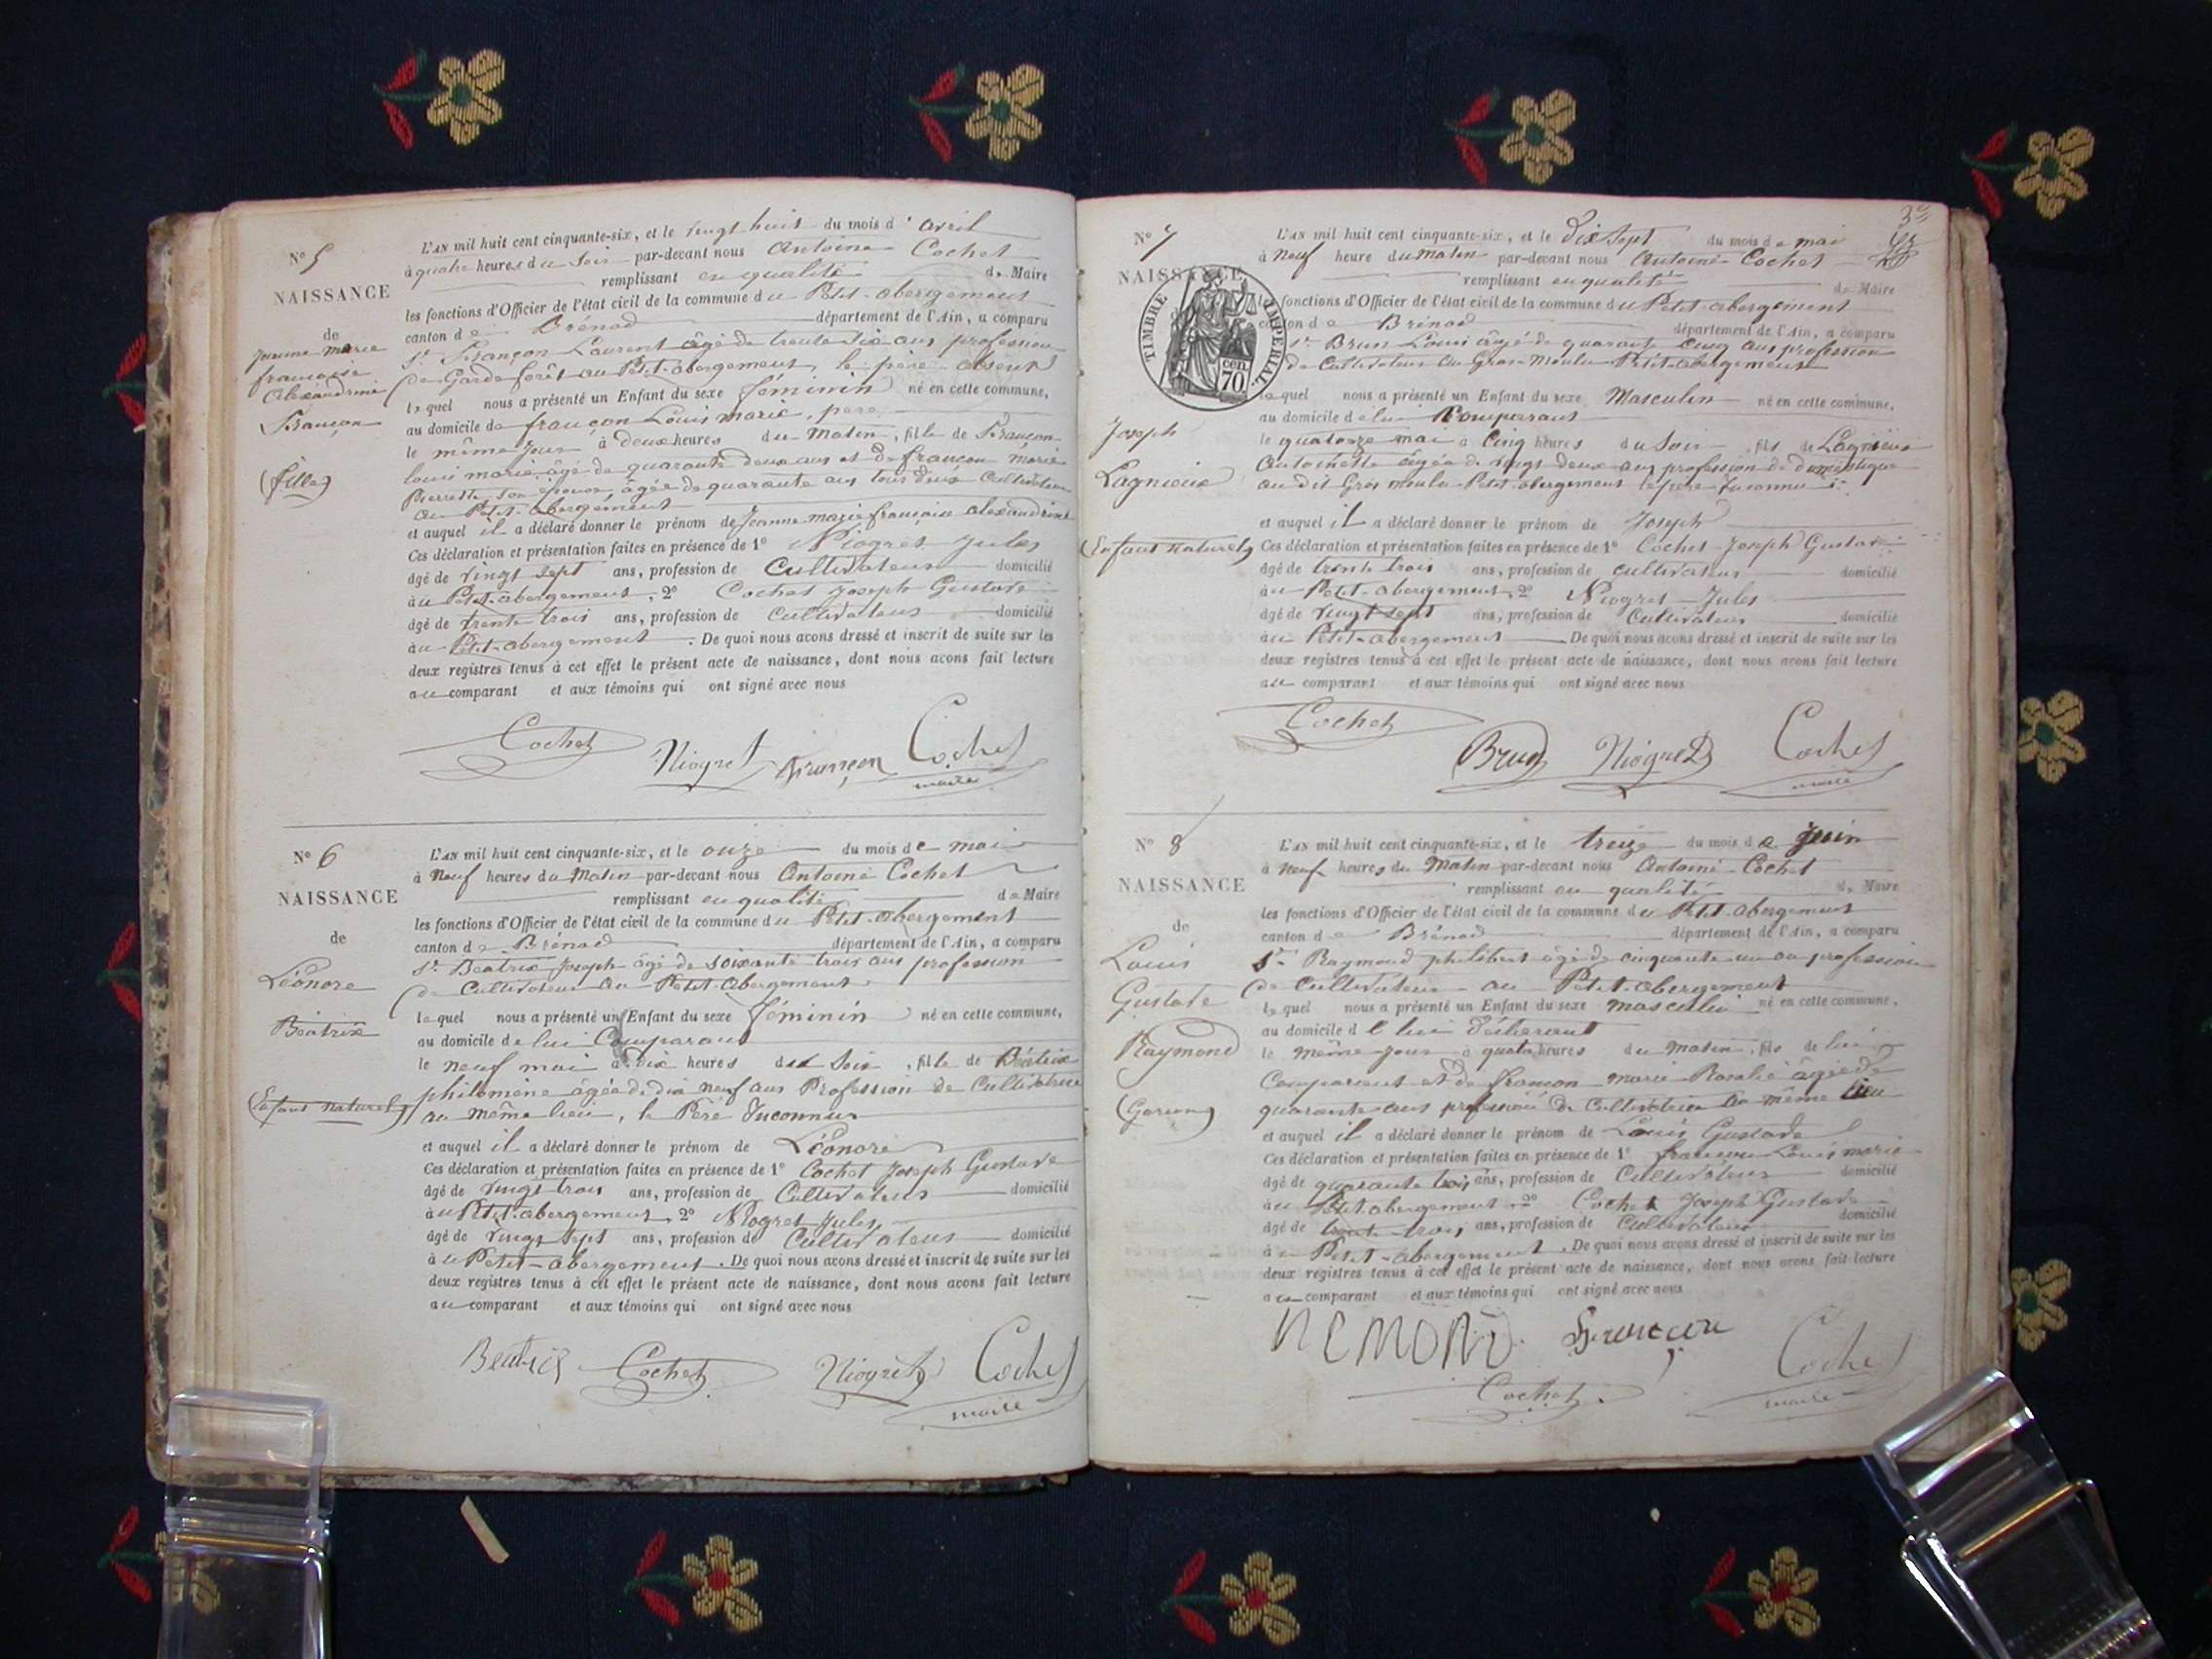 N° 5
NAISSANCE
de
Jeanne marie
françoise
Alexandrine
Françon
(fille)
L'AN mil huit cent cinquante-six, et le vingt huit du mois d'avril
à quatre heures du soir par-devant nous Antoine Cochet
remplissant en qualité de Maire
les fonctions d'Officier de l'état civil de la commune du Petit-abergement
canton de Brénod département de l'Ain, a comparu
sr. Françon Laurent âgé de trente six ans profession
de Garde forêt au Petit-abergement, le père absent
lequel nous a présenté un Enfant du sexe féminin né en cette commune,
au domicile de françon Louis marie, père
le même jour à deux heures du Matin, fille de Françon
louis marie âgé de quarante deux ans et de françon marie
Pierrette son épouse, âgée de quarante ans tous deux Cultivateurs
au Petit-abergement
et auquel il a déclaré donner le prénom de Jeanne marie françoise alexandrine
Ces déclaration et présentation faites en présence de 1° Niogret Jules
âgé de vingt sept ans, profession de Cultivateur domicilié
au Petit-abergement, 2° Cochet Joseph Gustave
âgé de trente trois ans, profession de Cultivateur domicilié
au Petit-abergement. De quoi nous avons dressé et inscrit de suite sur les
deux registres tenus à cet effet le présent acte de naissance, dont nous avons fait lecture
au comparant et aux témoins qui ont signé avec nous
Cochet Niogret françon Cochet
maire
N° 6
NAISSANCE
de
Léonore
Béatrix
(Enfant naturel)
L'AN mil huit cent cinquante-six, et le onze du mois de mai
à Neuf heures du Matin par-devant nous Antoine Cochet
remplissant en qualité de Maire
les fonctions d'Officier de l'état civil de la commune du Petit-abergement
canton de Brénod département de l'Ain, a comparu
sr. Béatrix Joseph âgé de soixante trois ans profession
de Cultivateur au Petit-abergement
lequel nous a présenté un Enfant du sexe féminin né en cette commune,
au domicile de lui Comparant
le neuf mai à Dix heures du Soir, fille de Béatrix
philomène âgée de dix neuf ans Profession de Cultivatrice
au même lieu, le Père Inconnu
et auquel il a déclaré donner le prénom de Léonore
Ces déclaration et présentation faites en présence de 1° Cochet Joseph Gustave
âgé de vingt trois ans, profession de Cultivateur domicilié
au Petit-abergement, 2° Niogret Jules
âgé de vingt sept ans, profession de Cultivateur domicilié
au Petit-abergement. De quoi nous avons dressé et inscrit de suite sur les
deux registres tenus à cet effet le présent acte de naissance, dont nous avons fait lecture
au comparant et aux témoins qui ont signé avec nous
Beatrix Cochet Niogret Cochet
maire
N° 7
NAISSANCE
TIMBRE IMPERIAL
70 cen.
Joseph
Lagnieux
(Enfant naturel)
L'AN mil huit cent cinquante-six, et le Dix Sept du mois de mai
à neuf heure du matin par-devant nous Antoine Cochet
remplissant en qualité de Maire
les fonctions d'Officier de l'état civil de la commune du Petit-abergement
canton de Brénod département de l'Ain, a comparu
sr. Brun Louis âgé de quarante cinq ans profession
de Cultivateur au Gros-Moulu Petit-abergement
lequel nous a présenté un Enfant du sexe Masculin né en cette commune,
au domicile de lui Comparant
le quatorze mai à Cinq heures du Soir, fils de Lagnieux
Antoinette âgée de vingt deux ans profession de domestique
au dit Gros moulu Petit-abergement le père Inconnu
et auquel il a déclaré donner le prénom de Joseph
Ces déclaration et présentation faites en présence de 1° Cochet Joseph Gustave
âgé de trente trois ans, profession de cultivateur domicilié
au Petit-abergement, 2° Niogret Jules
âgé de vingt sept ans, profession de Cultivateur domicilié
au Petit-abergement De quoi nous avons dressé et inscrit de suite sur les
deux registres tenus à cet effet le présent acte de naissance, dont nous avons fait lecture
au comparant et aux témoins qui ont signé avec nous
Cochet Brun Niogret Cochet
maire
N° 8
NAISSANCE
de
Louis
Gustave
Raymond
(Garçon)
L'AN mil huit cent cinquante-six, et le treize du mois de Juin
à neuf heures du Matin par-devant nous Antoine Cochet
remplissant en qualité de Maire
les fonctions d'Officier de l'état civil de la commune du Petit-abergement
canton de Brénod département de l'Ain, a comparu
sr. Raymond philibert âgé de cinquante un an profession
de Cultivateur au Petit-abergement
lequel nous a présenté un Enfant du sexe masculin né en cette commune,
au domicile de lui déclarant
le même jour à quatre heures du matin, fils de lui
Comparant et de françon marie Rosalie âgée de
quarante ans profession de Cultivatrice au même lieu
et auquel il a déclaré donner le prénom de Louis Gustave
Ces déclaration et présentation faites en présence de 1° françon Louis marie
âgé de quarante trois ans, profession de Cultivateur domicilié
au Petit abergement 2° Cochet Joseph Gustave
âgé de trente trois ans, profession de Cultivateur domicilié
au Petit-abergement. De quoi nous avons dressé et inscrit de suite sur les
deux registres tenus à cet effet le présent acte de naissance, dont nous avons fait lecture
au comparant et aux témoins qui ont signé avec nous
françon
Cochet Cochet
maire